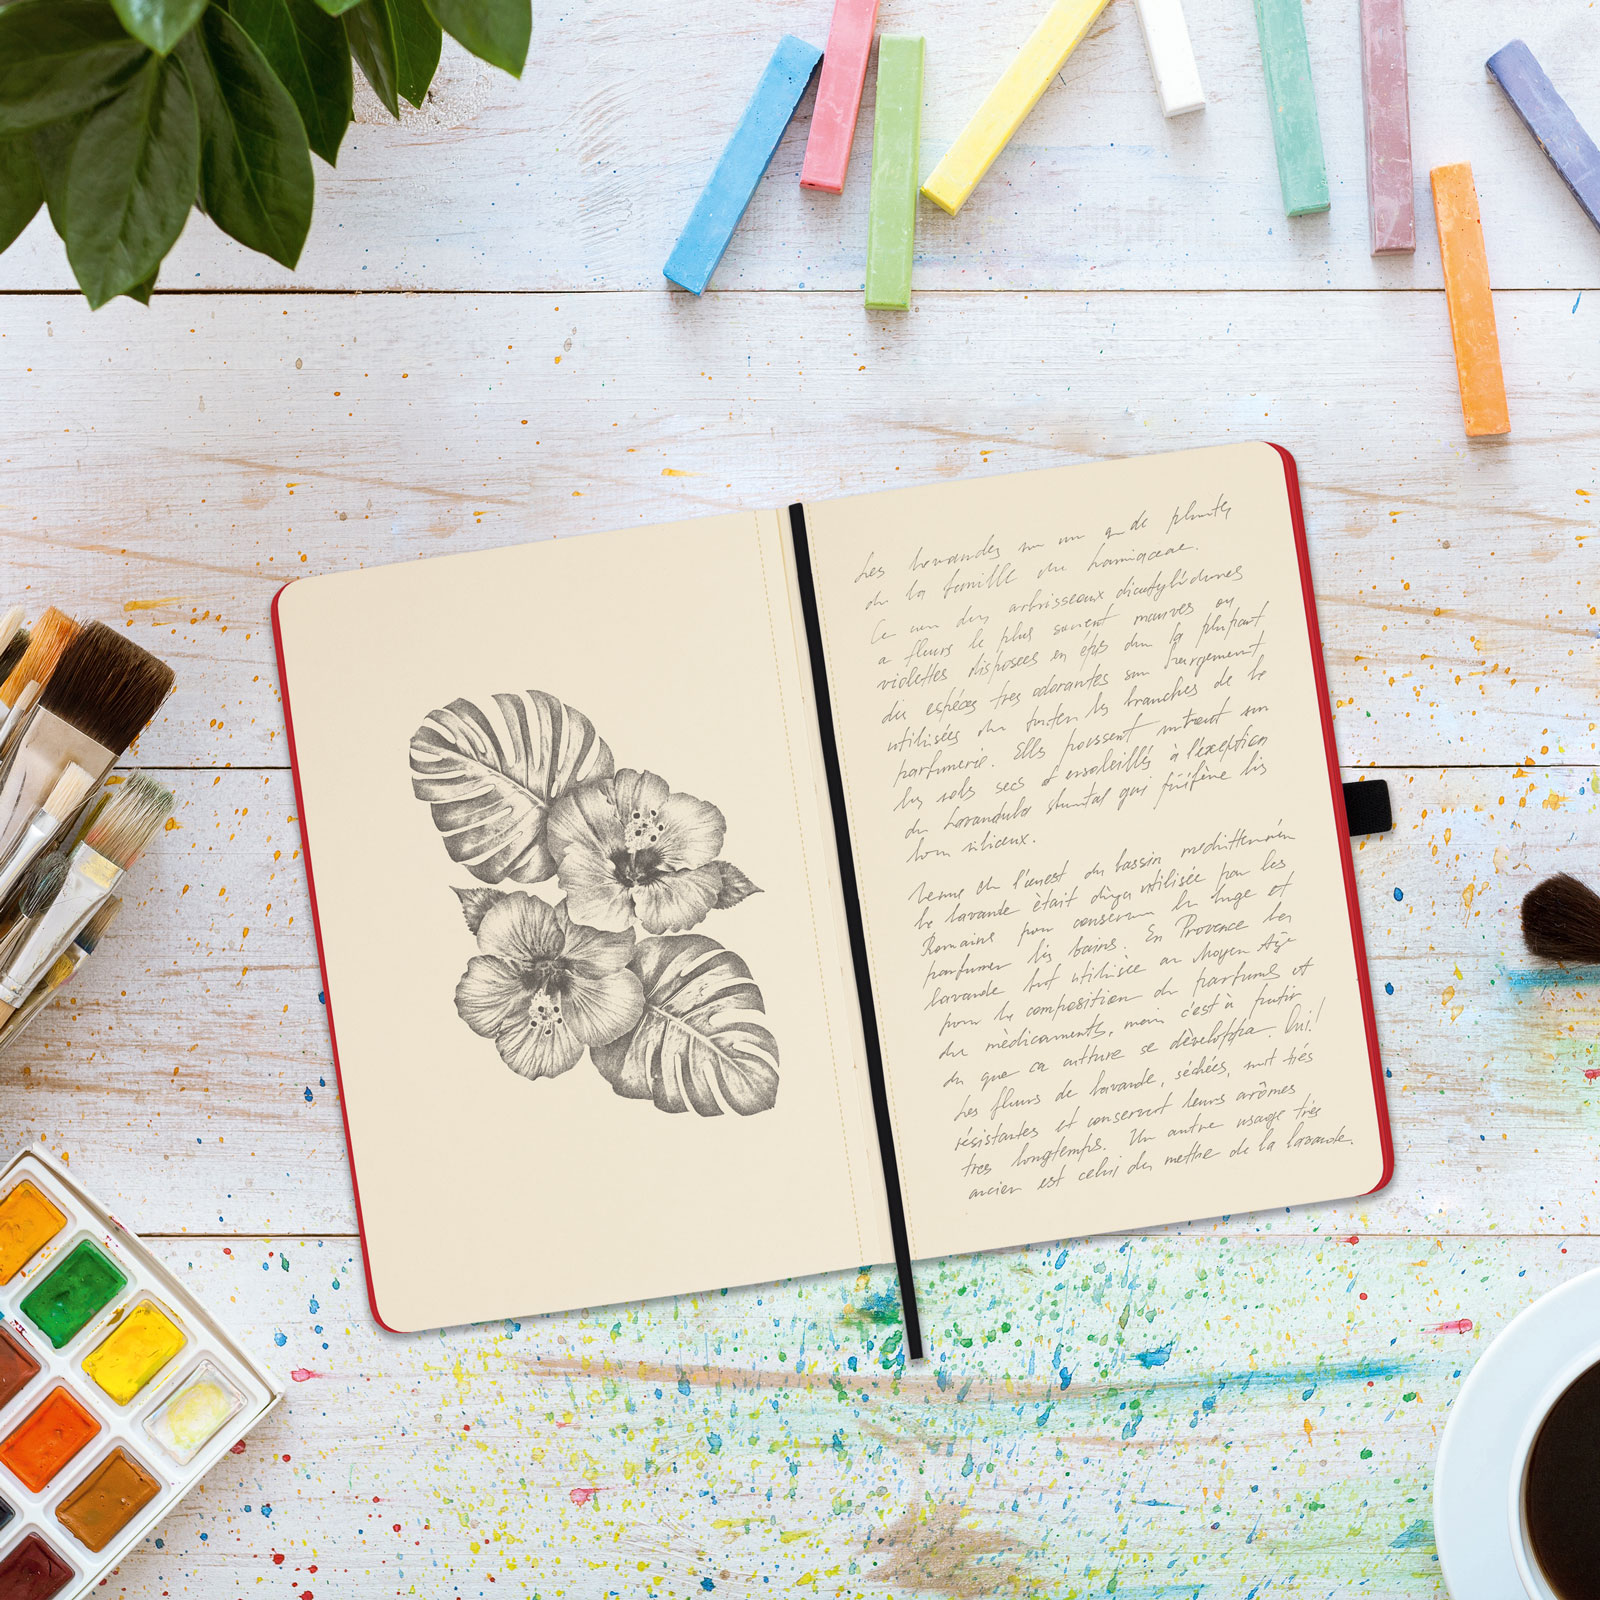 Les lavandes sur un g de plantes
de la famille du Lamiaceae.
Ce son des arbrisseaux dicotylédones
a fleurs le plus souvent mauves ou
violettes disposees en épis dan la plupart
des espéces tres odorantes son largement
utilisées dan toutes les branches de la
parfumerie. Elles poussent surtout sur
les sols secs et ensoleillés à l'éxception
du Lavandula qui préfère les
silicieux.
Venue de l'ouest du bassin mediterranéen
la lavande était déja utilisée par les
Romains pour conserver le linge et
parfumer les bains. En Provence la
lavande fut utilisée au Moyen Age
pour la composition de parfums et
du mèdicaments, mais c'est à partir
du que ca culture se dèveloppa. Oui!
Les fleurs de lavande, séchées, sont trés
résistantes et conservent leurs arômes
tres longtemps. Un autre usage trés
ancien est celui du mettre de la lavande.